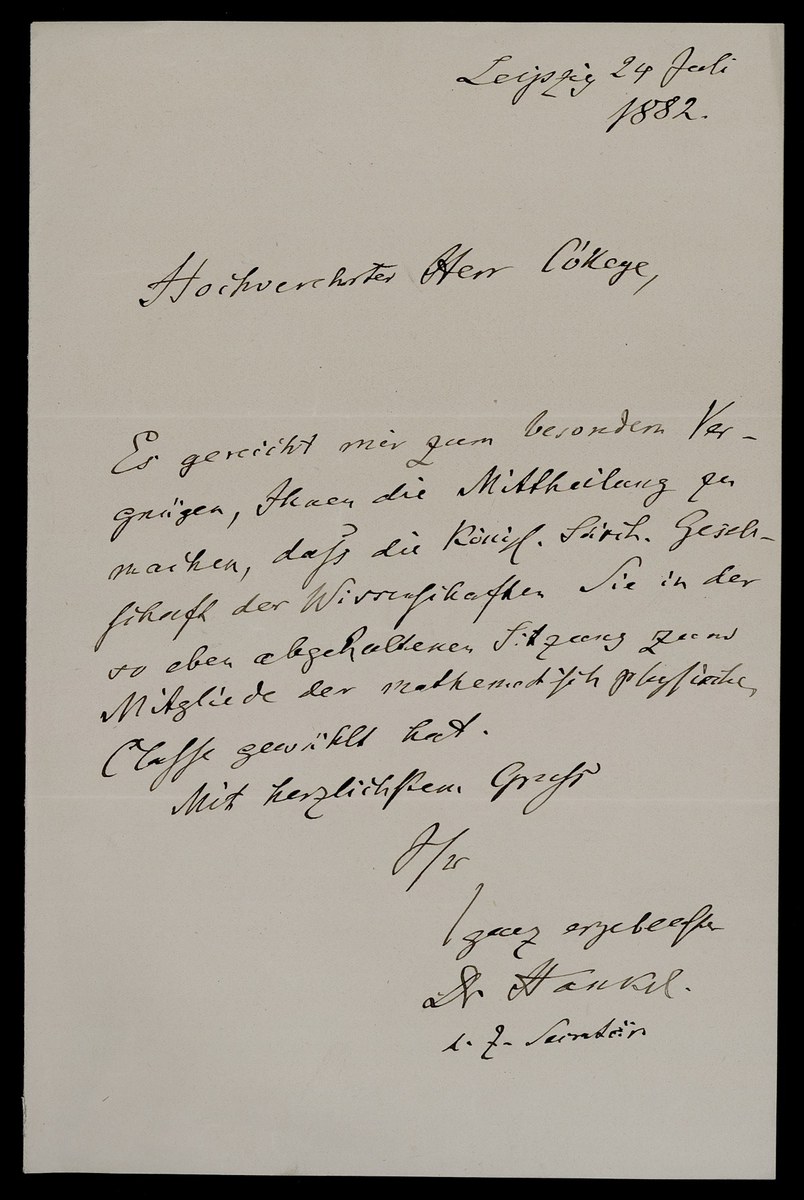 Leipzig 24 Juli
1882.
Hochverehrter Herr College,
Es gereicht mir zum besondern Ver-
gnügen, Ihnen die Mittheilung zu
machen, daſs die Königl. Sächs. Gesell-
schaft der Wissenschaften Sie in der
so eben abgehaltenen Sitzung zum
Mitgliede der mathematisch physischen
Classe gewählt hat.
Mit herzlichstem Gruss
Ihr
ganz ergebenster
Dr Hankel.
d. Z. Secretär